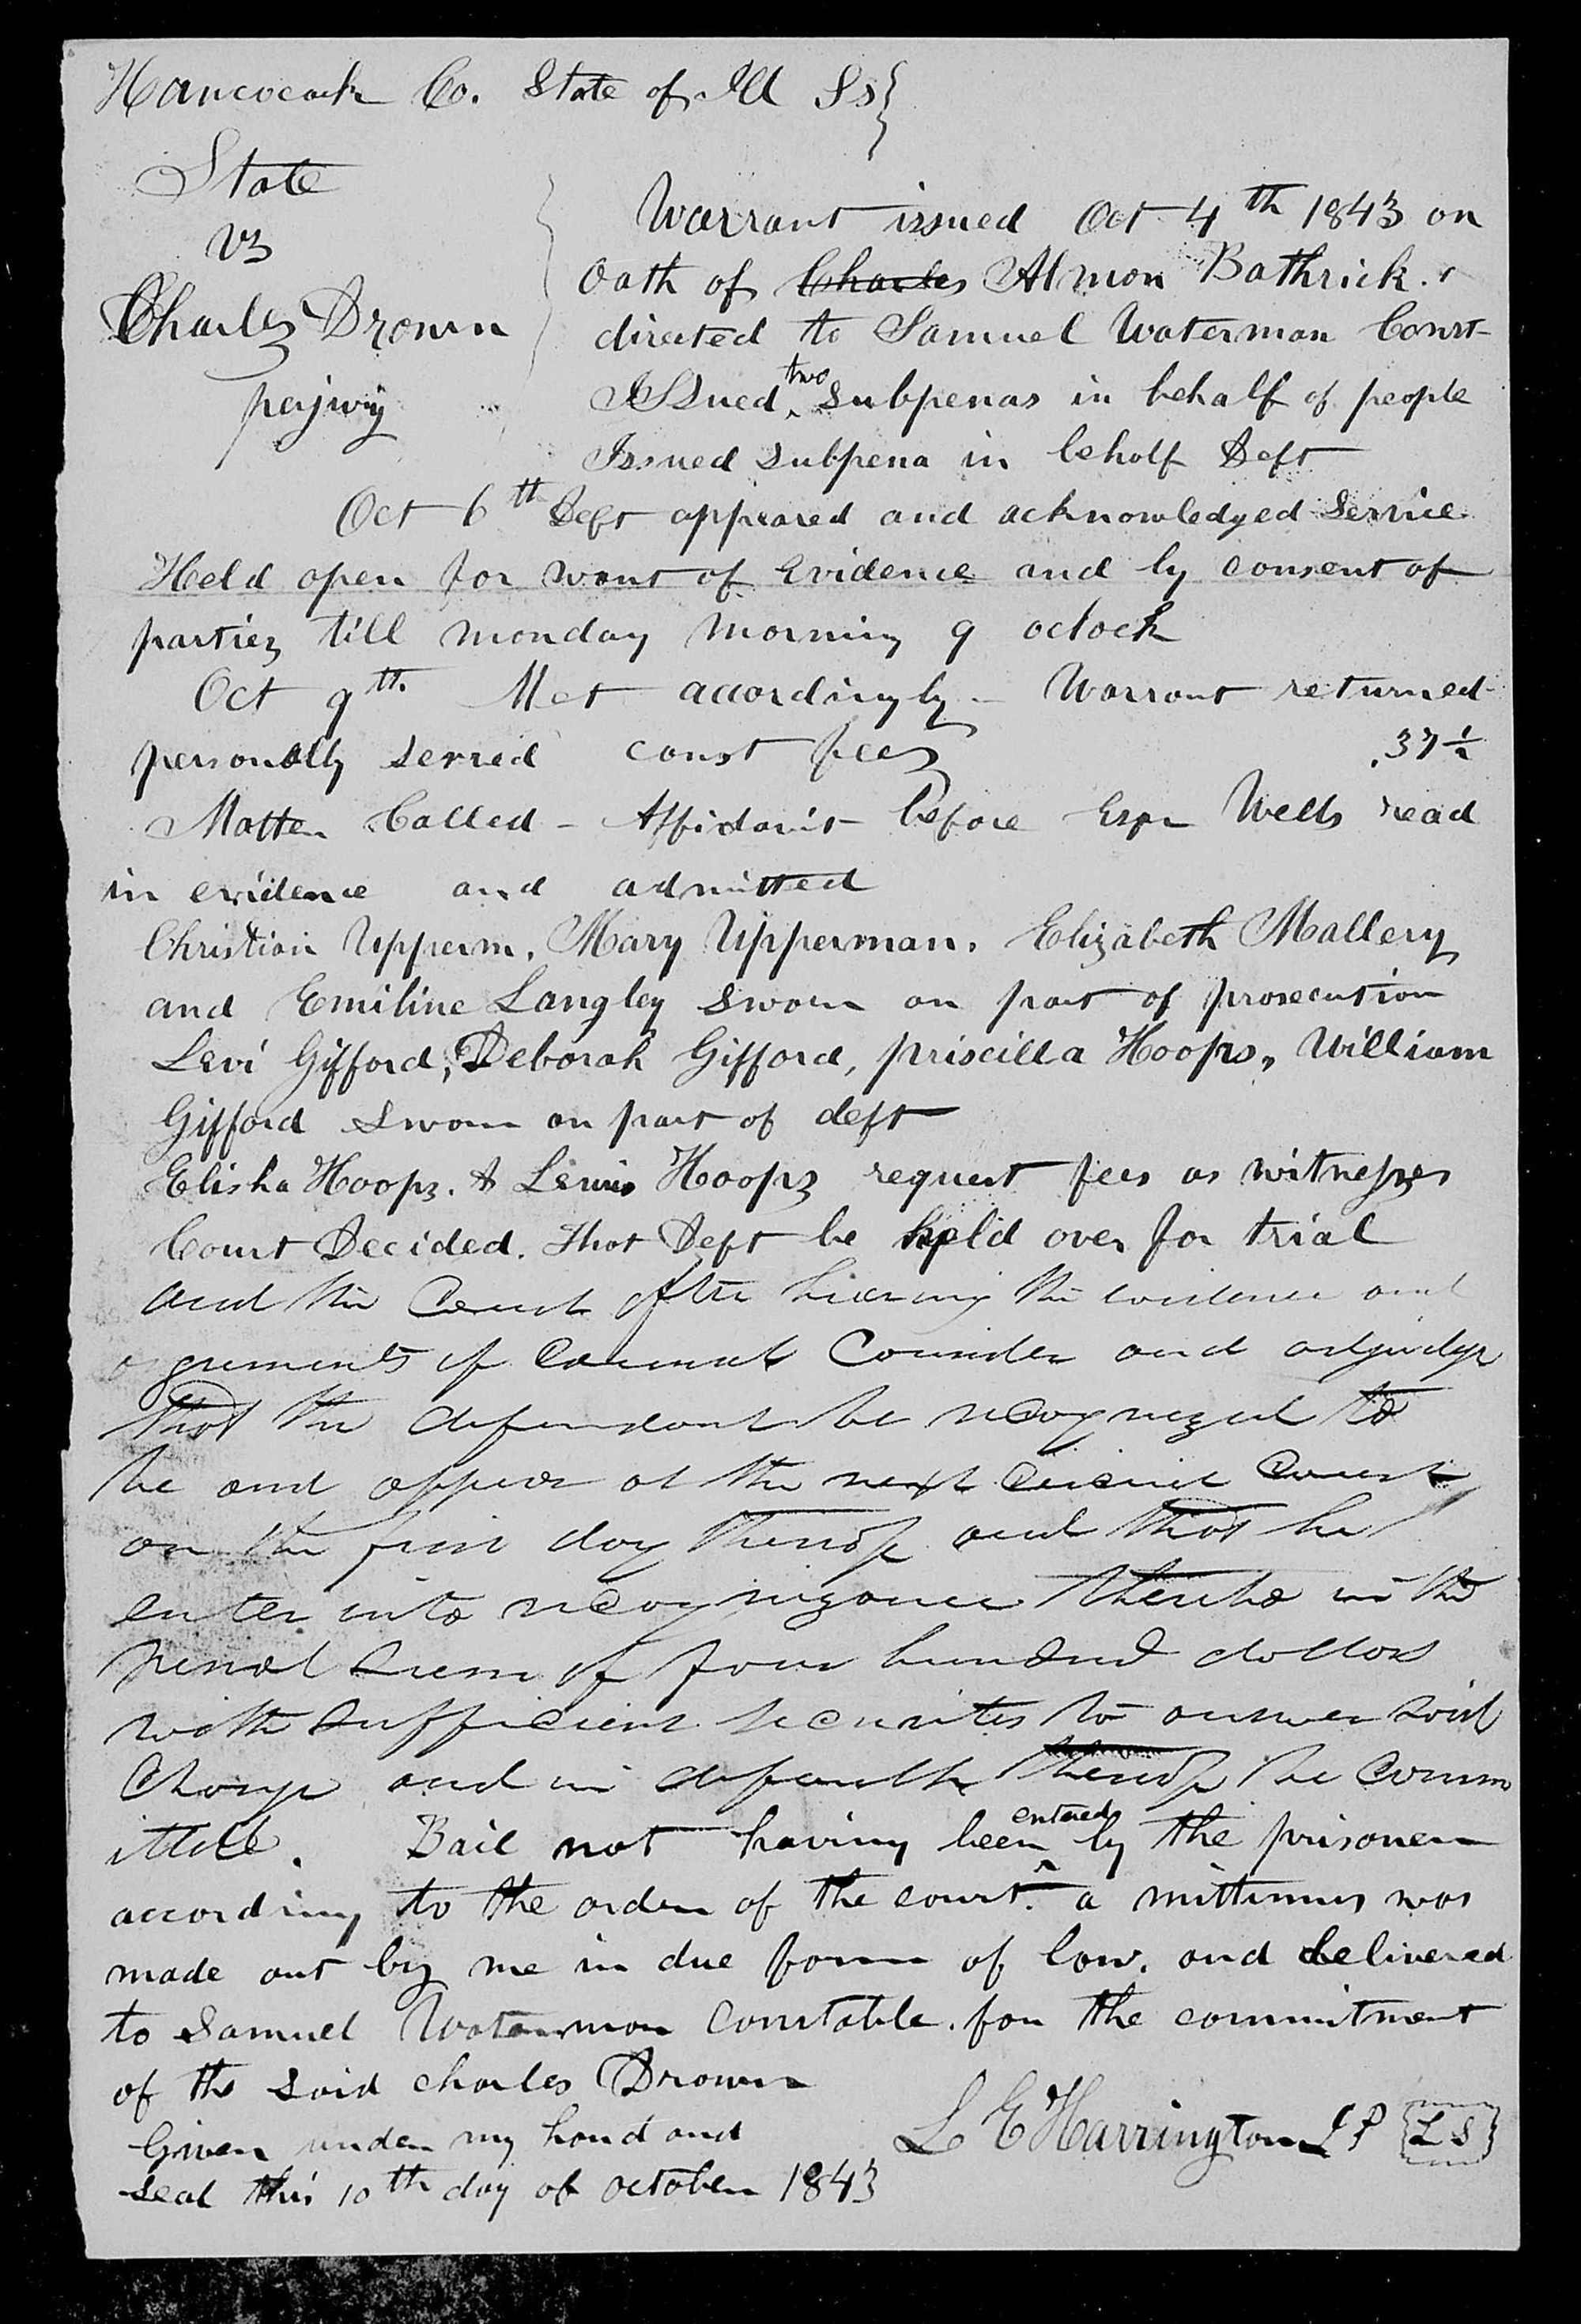 Hancocack Co. State of Ill Ss}
State
vs
Charles Drown
perjury
Warrant issued Oct 4th 1843 on
Oath of Charles Almon Bathrick.
directed to Samuel Waterman Const
Issued two subpenas in behalf of people
Issued subpena in behalf Deft
Oct 6th Deft appeared and acknowledged Service
Held open for want of Evidence and by consent of
parties till monday morning 9 oclock
Oct 9th. Met accordingly - Warrant returned
personally served const fees .37½
Matter Called - Affidavit before Esqr Wells read
in evidence and admitted
Christian Upperm, Mary Upperman. Elizabeth Mallery
and Emiline Langley sworn on part of prosecution
Levi Gifford, Deborah Gifford, priscilla Hoops, William
Gifford sworn on part of deft
Elisha Hoops. & Lewis Hoops request fees as witnesses
Court Decided. That Deft be held over for trial
and the Court after hearing the evidence and
arguments of Counsel Consider and adjudge
that the defendant be recognized to
be and appear at the next Circuit Court
on the first day thereof and that he
enter into recognizance thereto in the
penal sum of four hundred dollars
with sufficient securites to answer said
Charge and in default thereof be comm
itted. Bail not having been entered by the prisoner
according to the order of the court. a mittimus was
made out by me in due form of law. and delivered
to Samuel Waterman Constable. for the commitment
of the said charles Drown
Given under my hand and
seal this 10th day of october 1843
L E Harrington J P {L S}